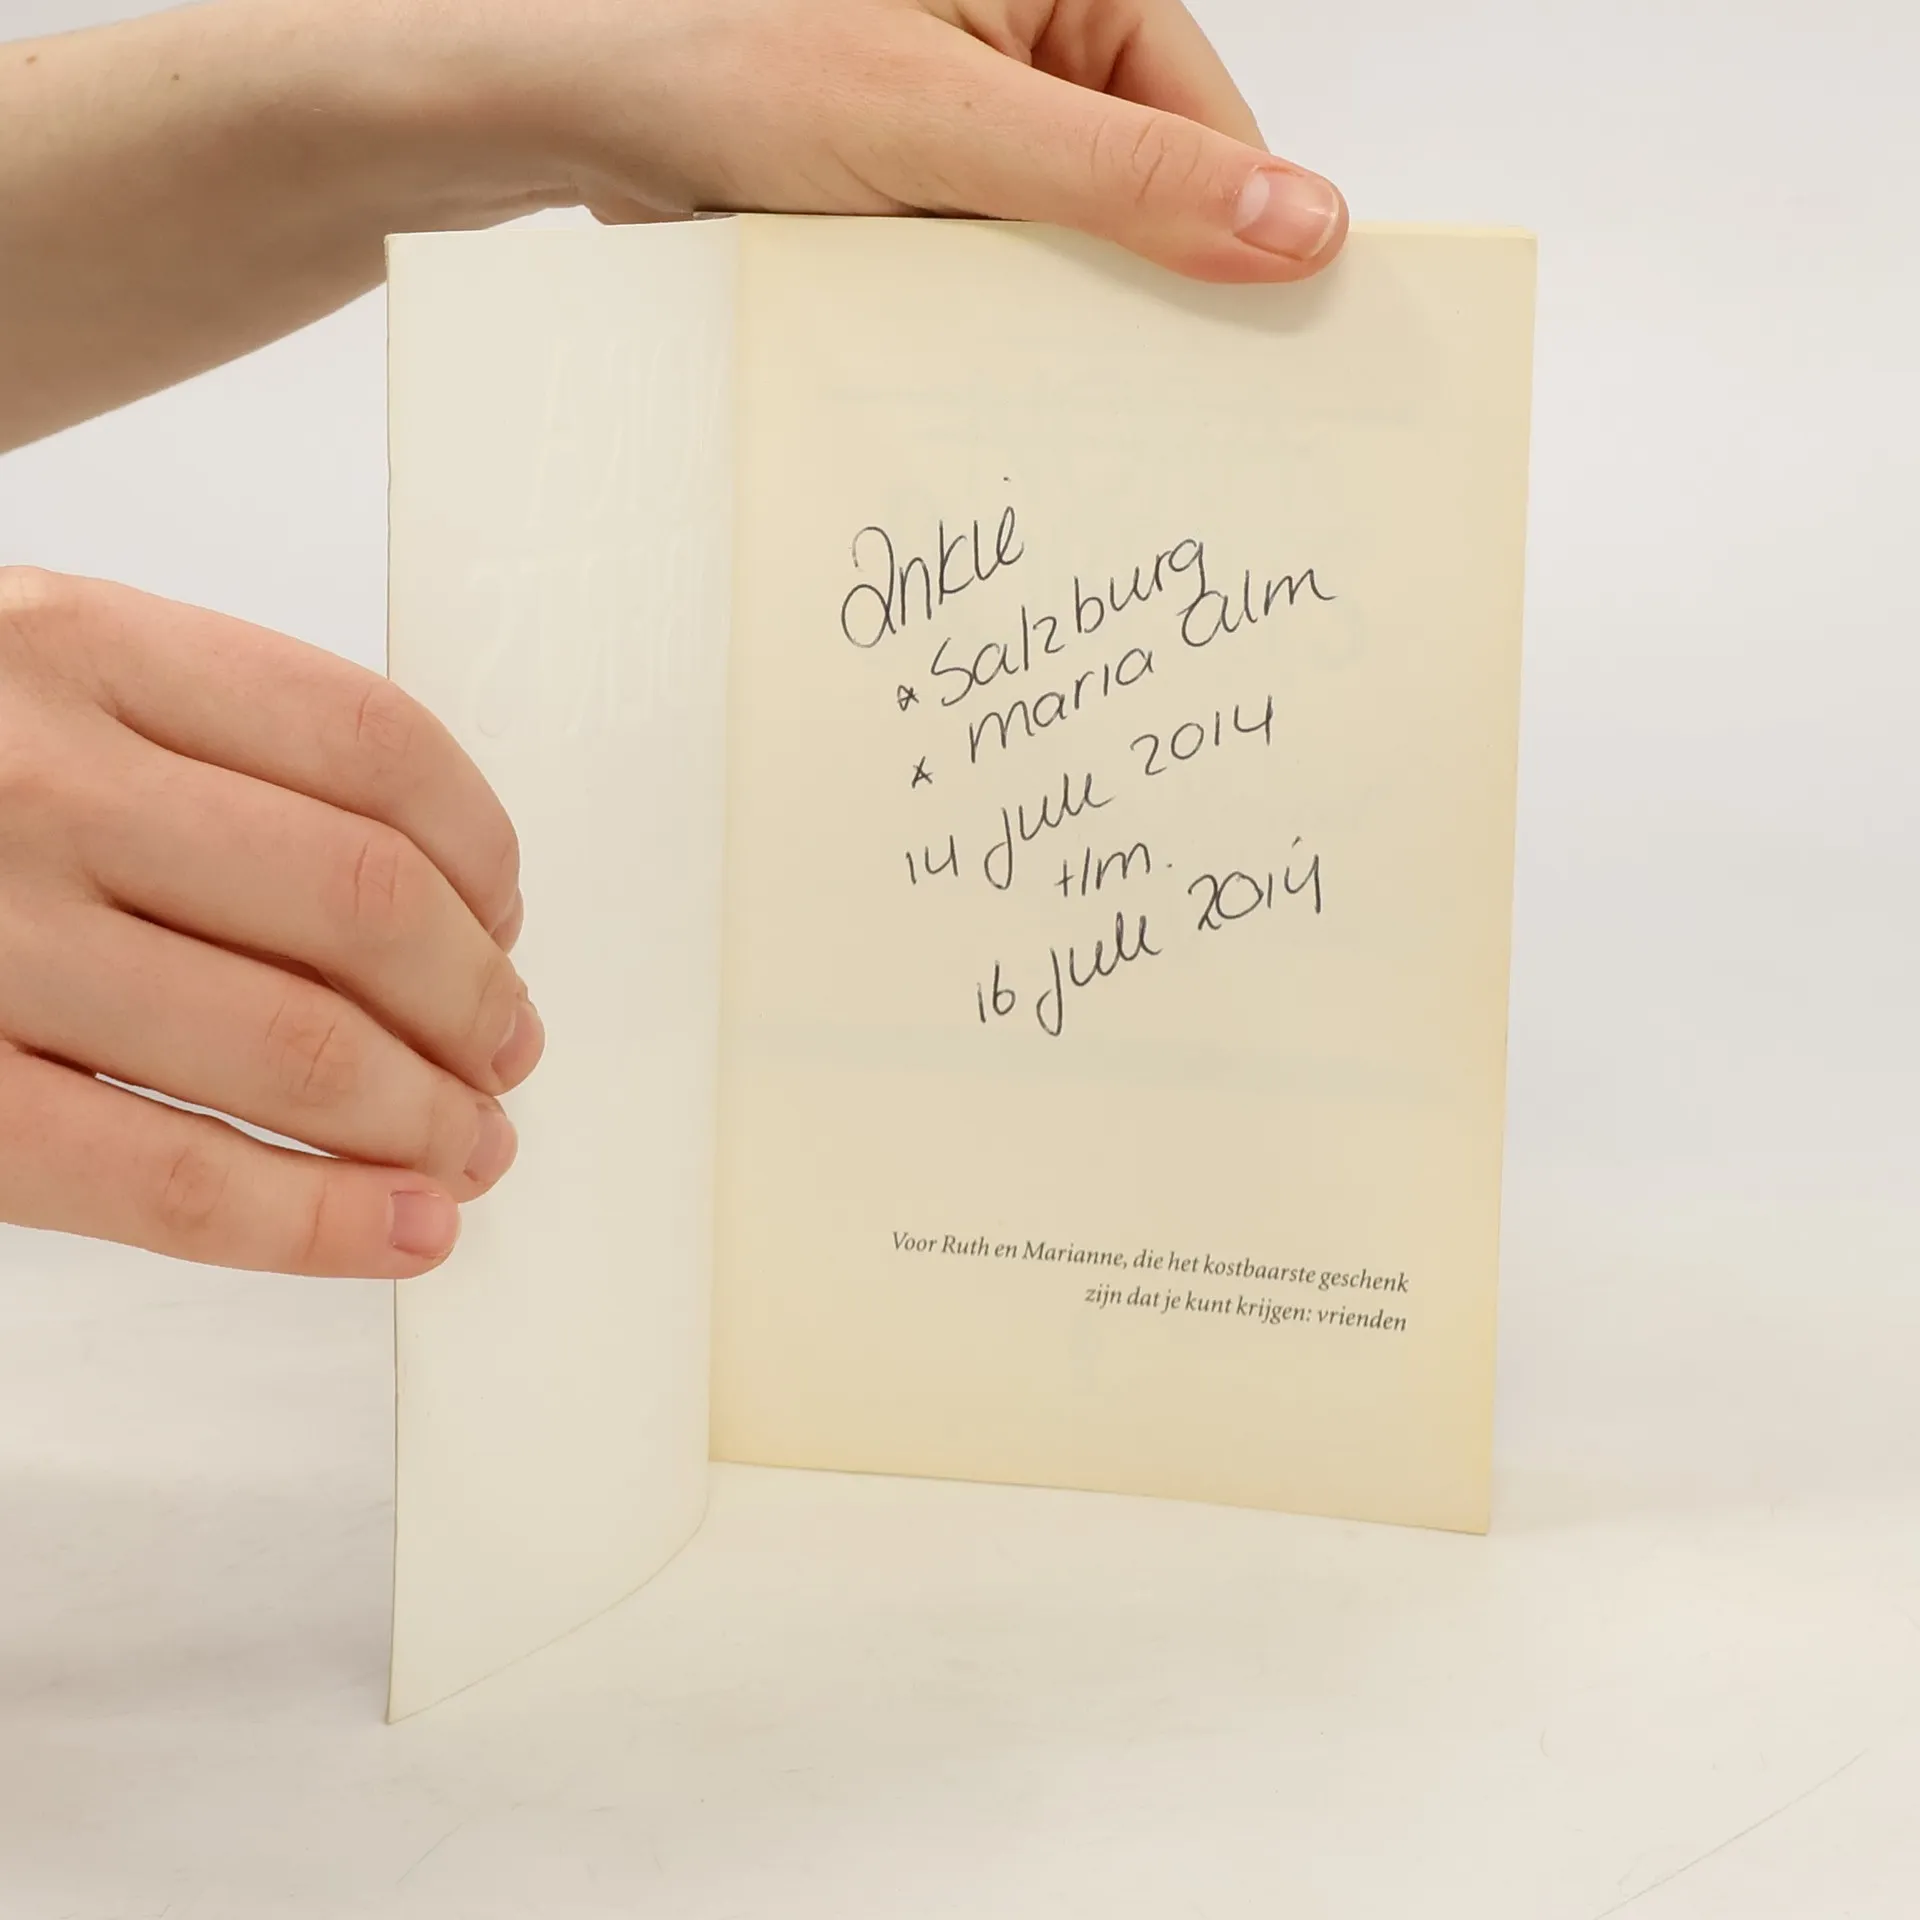 Ankie
* Salzburg
* maria alm
14 juli 2014
t/m.
16 juli 2014
Voor Ruth en Marianne, die het kostbaarste geschenk
zijn dat je kunt krijgen: vrienden